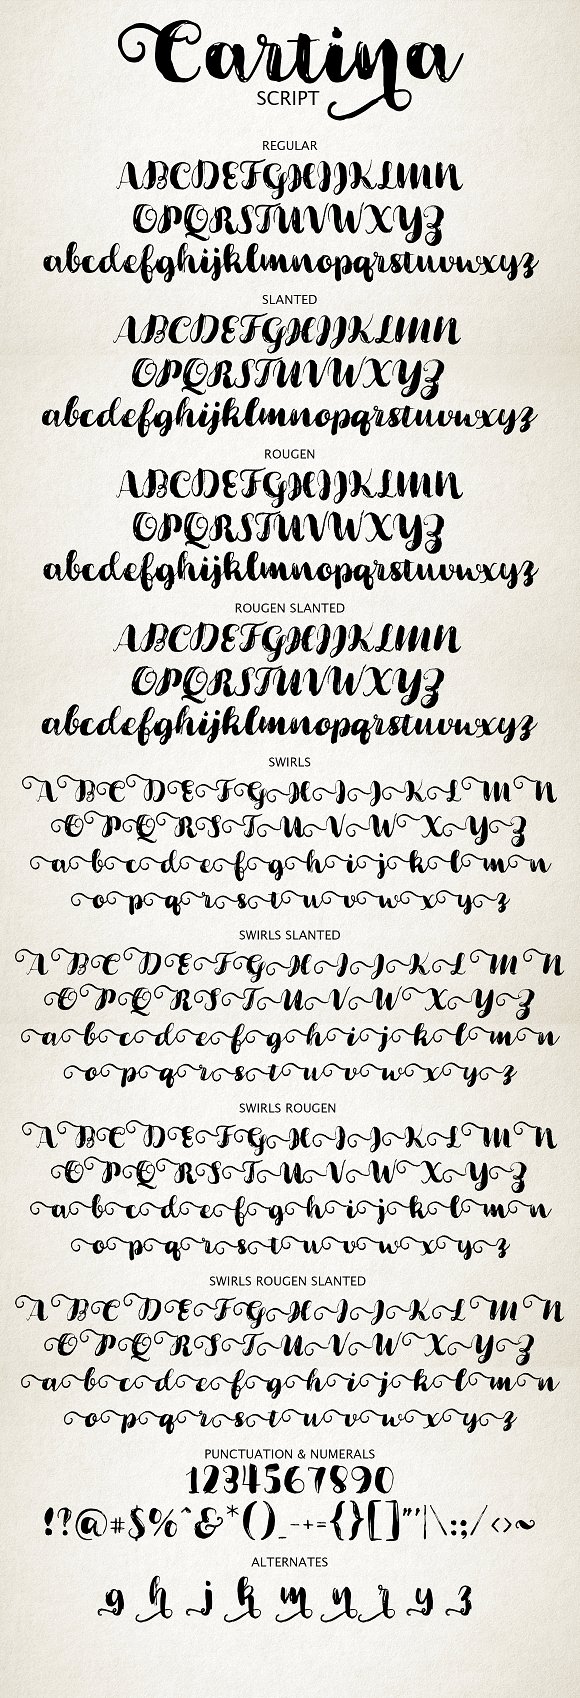 Cartina
SCRIPT
REGULAR
ABCDEFGHIJKLMN
OPQRSTUVWXYZ
abcdefghijklmnopqrstuvwxyz
SLANTED
ABCDEFGHIJKLMN
OPQRSTUVWXYZ
abcdefghijklmnopqrstuvwxyz
ROUGEN
ABCDEFGHIJKLMN
OPQRSTUVWXYZ
abcdefghijklmnopqrstuvwxyz
ROUGEN SLANTED
ABCDEFGHIJKLMN
OPQRSTUVWXYZ
abcdefghijklmnopqrstuvwxyz
SWIRLS
A B C D E F G H I J K L M N
O P Q R S T U V W X Y Z
a b c d e f g h i j k l m n
o p q r s t u v w x y z
SWIRLS SLANTED
A B C D E F G H I J K L M N
O P Q R S T U V W X Y Z
a b c d e f g h i j k l m n
o p q r s t u v w x y z
SWIRLS ROUGEN
A B C D E F G H I J K L M N
O P Q R S T U V W X Y Z
a b c d e f g h i j k l m n
o p q r s t u v w x y z
SWIRLS ROUGEN SLANTED
A B C D E F G H I J K L M N
O P Q R S T U V W X Y Z
a b c d e f g h i j k l m n
o p q r s t u v w x y z
PUNCTUATION & NUMERALS
1234567890
!?@#$%^&*()_-+={}[]"'|\:;/<>~
ALTERNATES
g h j k m n r y z